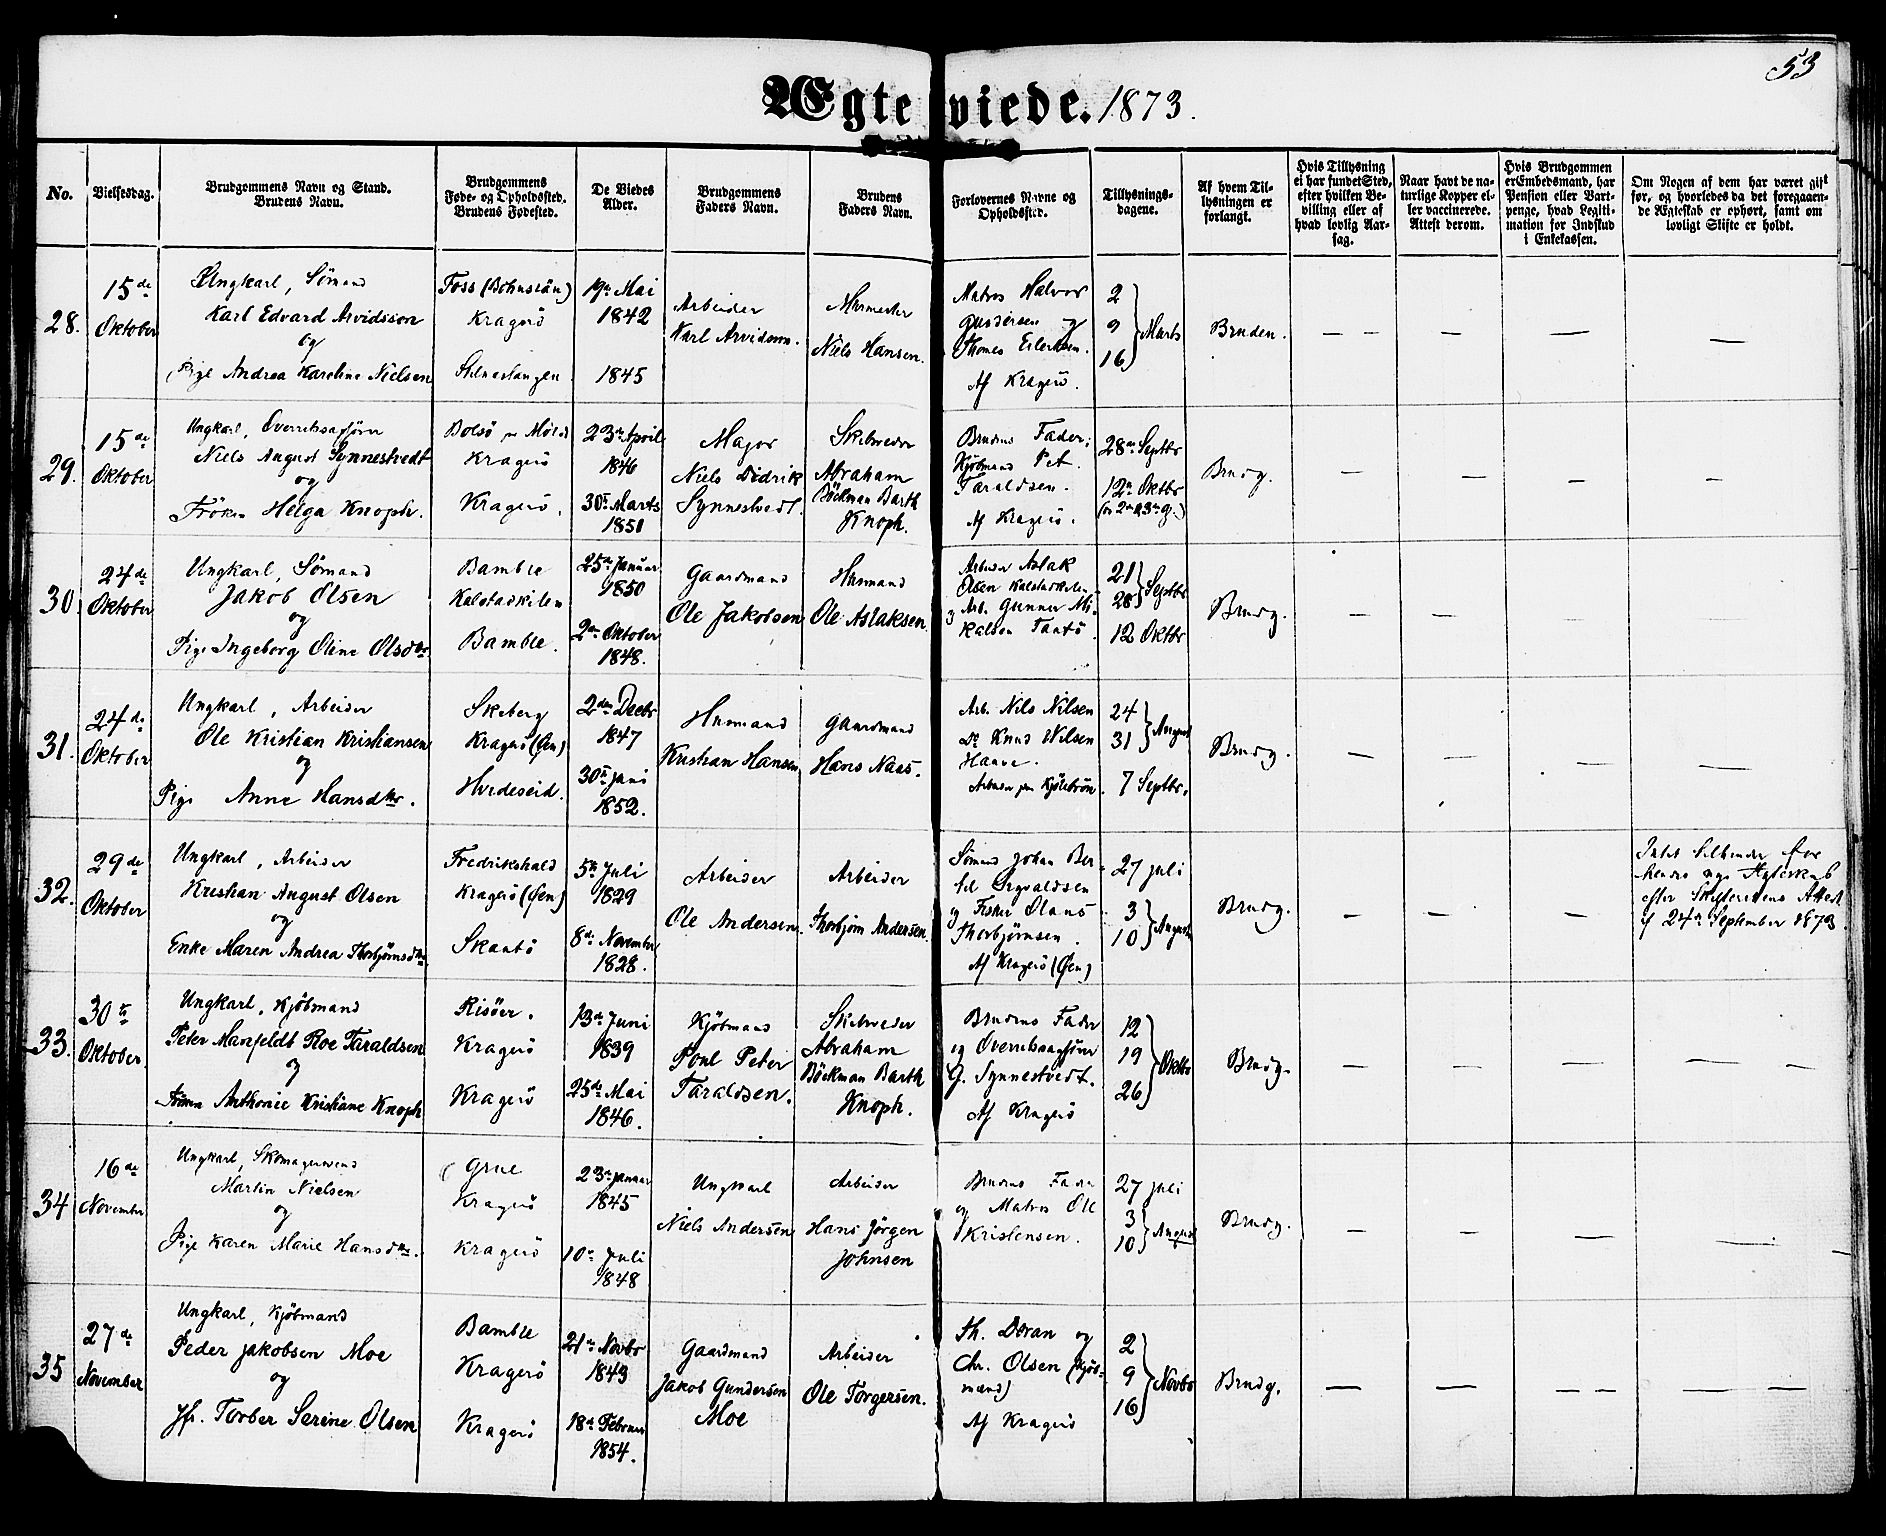 53
Ægteviede. 1873.
No.
Vielsesdag.
Brudgommens Navn og Stand.
Brudens Navn.
Brudgommens
Føde- og Opholdssted.
Brudens Fødested.
De Viedes
Alder.
Brudgommens
Faders Navn.
Brudens
Faders Navn.
Forlovernes Navne og
Opholdssted.
Tillysnings-
dagene.
Af hvem Til-
lysningen er
forlangt.
Hvis Tillysning
ei har fundet Sted,
efter hvilken Be-
villing eller af
hvad lovlig Aar-
sag.
Naar havt de na-
turlige Kopper el-
ler vaccinerede.
Attest derom.
Hvis Brudgommen
er Embedsmand, har
Pension eller Vart-
penge, hvad Legiti-
mation for Indskud
i Enkekassen.
Om Nogen af dem har været gift
før, og hvorledes da det foregaaen-
de Ægteskab er ophørt, samt om
lovligt Skifte er holdt.
28.
15de
Oktober
Ungkarl, Sømand
Karl Edvard Arvidsson
og
Pige Andrea Karoline Nielsen
Foss (Bohuslän)
Kragerö
Stilnestangen
19n Mai
1842
1845
Arbeider
Karl Arvidsson.
Murmester
Niels Hansen.
Matros Halvor
Gundersen og
Thomes Eilertsen.
Af Kragerö.
2
9
16
Marts
Bruden.
— — — — —
29.
15de
Oktober
Ungkarl, Overretssagfører
Niels August Synnestvedt
og
Fröken Helga Knoph.
Bolsö pr Molde
Kragerö
Kragerö.
23n April
1846
30te Marts
1851
Major
Niels Didrik
Synnestvedt.
Skibsreder
Abraham
Böckman Barth
Knoph.
Brudens Fader;
Kjöbmand Pet.
Taraldsen.
Af Kragerö.
28n Septbr
12n Oktbr
(for 2n & 3n G.)
Brudg.
— — — —
30
24de
Oktober
Ungkarl, Sømand
Jakob Olsen
og
Pige Ingeborg Oline Olsdtr.
Bamble
Kalstadkilen
Bamble.
25n Januar
1850
2den Oktober
1848.
Gaardmand
Ole Jakobsen
Husmand
Ole Aslaksen.
Arbeider Aslak
Olsen Kalstadkilen
og Arb. Gunner Mi-
kalsen Taatö.
21
28
Septbr
12 Oktbr
Brudg.
— — — —
31.
24de
Oktober
Ungkarl, Arbeider
Ole Kristian Kristiansen
og
Pige Anne Hansdtr.
Skeberg
Kragerö (Øen)
Hvideseid.
2den Decbr
1847
30te Juni
1852.
Husmand
Kristian Hansen
Gaardmand
Hans Naas.
Arb. Nils Nilsen
Do Knud Nilsen
Haave.
24
31
August
7 Septbr.
Brudg.
— — — —
32.
29de
Oktober
Ungkarl, Arbeider
Kristian August Olsen
og
Enke Maren Andrea Thorbjørnsdtr.
Fredrikshald
Kragerö (Øen)
Skaatö
5te Juli
1829
8de November
1828.
Arbeider
Ole Andersen.
Arbeider
Thorbjørn Andersen.
Sømand Johan Ber-
tel Sigvaldsen
og Fisker Olaus
Thorbjørnsen.
Af Kragerö (Øen)
27 Juli
3
10
August
Brudg.
— — —
Intet til Hinder for
hendes nye Ægteskab
efter Skifterettens Attest
af 24n September 1873.
33.
30te
Oktober.
Ungkarl, Kjöbmand
Peter Manfeldt Roe Taraldsen
og
Fröken Anthonie Kristiane Knoph
Risöer.
Kragerö
Kragerö
13de Juni
1839
25de Mai
1846.
Kjöbmand
Poul Peter
Taraldsen.
Skibsreder
Abraham
Böckman Barth
Knoph.
Brudens Fader
og Overretssagfører
G. Synnestvedt.
Af Kragerö
12
19
26
Oktbr
Brudg.
— — — — —
34
16de
November
Ungkarl, Skomagersvend
Martin Nielsen
og
Pige Karen Marie Hansdtr.
Grue
Kragerö
Kragerö
23n Januar
1845
10n Juli
1848
Ungkarl
Niels Andersen
Arbeider
Hans Jørgen
Johnsen
Brudens Fader
og Matros Ole
Kristensen.
27 Juli
3
10
August
Brudg.
— — — — —
35
27de
November
Ungkarl, Kjöbmand
Peder Jakobsen Moe
og
Jfr. Torber Serine Olsen
Bamble
Kragerö
Kragerö
21n Novbr
1843
18n Februar
1854.
Gaardmand
Jakob Gundersen
Moe
Arbeider
Ole Torgersen.
Th. Doran og
Chr. Olsen (Kjöb-
mænd)
Af Kragerö
2
9
16
Novbr
Brudg.
— — — — — —